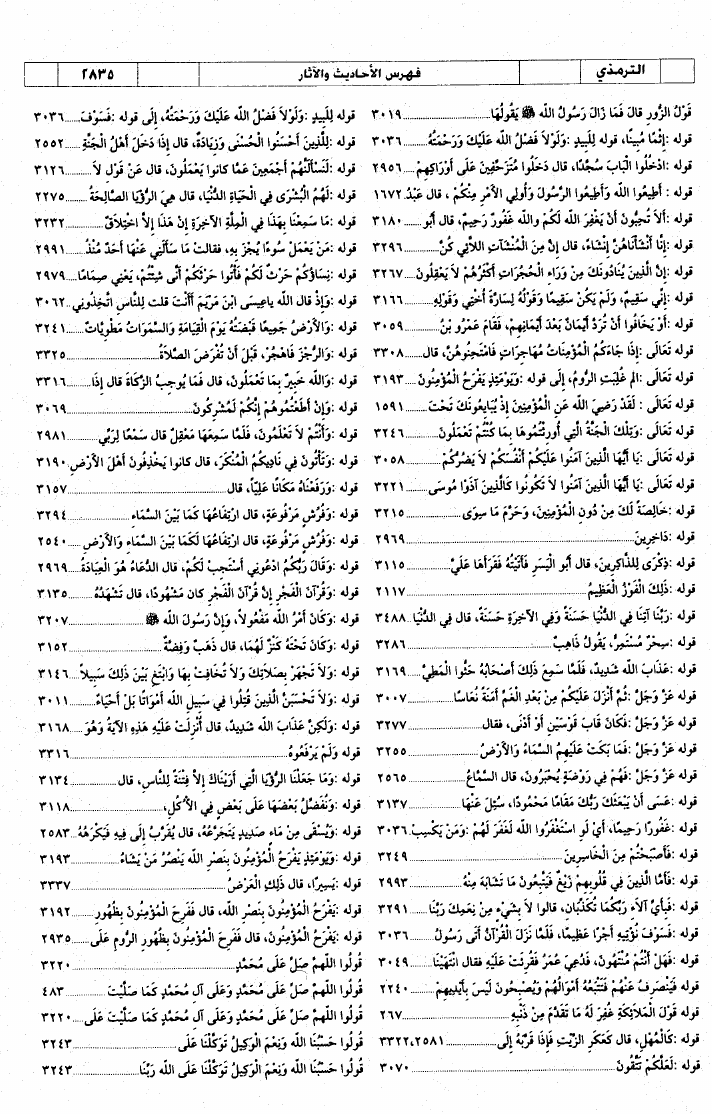 الترمذي
فهرس الأحاديث والآثار
٢٨٣٥
قَوْلُ الزُّورِ قَالَ فَمَا زَالَ رَسُولُ اللَّه ﷺ يَقُولُهَا ٣٠١٩
قوله :إِثْمًا مُبِينًا، قوله لِلَبِيدٍ :وَلَوْلاَ فَضْلُ اللَّه عَلَيْكَ وَرَحْمَتُهُ ٣٠٣٦
قوله :ادْخُلُوا الْبَابَ سُجَّدًا، قال دَخَلُوا مُتَزَحِّفِينَ عَلَى أَوْرَاكِهِمْ ٢٩٥٦
قوله : أَطِيعُوا اللَّه وَأَطِيعُوا الرَّسُولَ وَأُولِي الأَمْرِ مِنْكُمْ ، قال عَبْدُ ١٦٧٢
قوله :أَلاَ تُحِبُّونَ أَنْ يَغْفِرَ اللَّه لَكُمْ وَاللَّه غَفُورٌ رَحِيمٌ، قال أَبُو ٣١٨٠
قوله :إِنَّا أَنْشَأْنَاهُنَّ إِنْشَاءً، قال إِنَّ مِنَ الْمُنْشَآتِ اللاَّئِي كُنَّ ٣٢٩٦
قوله :إِنَّ الَّذِينَ يُنَادُونَكَ مِنْ وَرَاءِ الْحُجُرَاتِ أَكْثَرُهُمْ لاَ يَعْقِلُونَ ٣٢٦٧
قوله :إِنِّي سَقِيمٌ، وَلَمْ يَكُنْ سَقِيمًا وَقَوْلُهُ لِسَارَةَ أُخْتِي وَقَوْلِهِ ٣١٦٦
قوله :أَوْ يَخَافُوا أَنْ تُرَدَّ أَيْمَانٌ بَعْدَ أَيْمَانِهِمْ، فَقَامَ عَمْرُو بْنُ ٣٠٥٩
قوله تَعَالَى :إِذَا جَاءَكُمُ الْمُؤْمِنَاتُ مُهَاجِرَاتٍ فَامْتَحِنُوهُنَّ، قال ٣٣٠٨
قوله تَعَالَى :الم غُلِبَتِ الرُّومُ، إِلَى قوله :وَيَوْمَئِذٍ يَفْرَحُ الْمُؤْمِنُونَ ٣١٩٣
قوله تَعَالَى : لَقَدْ رَضِيَ اللَّه عَنِ الْمُؤْمِنِينَ إِذْ يُبَايِعُونَكَ تَحْتَ ١٥٩١
قوله تَعَالَى :وَتِلْكَ الْجَنَّةُ الَّتِي أُورِثْتُمُوهَا بِمَا كُنْتُمْ تَعْمَلُونَ ٣٢٤٦
قوله تَعَالَى :يَا أَيُّهَا الَّذِينَ آمَنُوا عَلَيْكُمْ أَنْفُسَكُمْ لاَ يَضُرُّكُمْ ٣٠٥٨
قوله تَعَالَى :يَا أَيُّهَا الَّذِينَ آمَنُوا لاَ تَكُونُوا كَالَّذِينَ آذَوْا مُوسَى ٣٢٢١
قوله :خَالِصَةً لَكَ مِنْ دُونِ الْمُؤْمِنِينَ، وَحَرَّمَ مَا سِوَى ٣٢١٥
قوله :دَاخِرِينَ ٢٩٦٩
قوله :ذِكْرَى لِلذَّاكِرِينَ، قال أَبُو الْيَسَرِ فَأَتَيْتُهُ فَقَرَأَهَا عَلَيَّ ٣١١٥
قوله :ذَلِكَ الْفَوْزُ الْعَظِيمُ ٢١١٧
قوله :رَبَّنَا آتِنَا فِي الدُّنْيَا حَسَنَةً وَفِي الآخِرَةِ حَسَنَةً، قال فِي الدُّنْيَا ٣٤٨٨
قوله :سِحْرٌ مُسْتَمِرٌّ، يَقُولُ ذَاهِبٌ ٣٢٨٦
قوله :عَذَابَ اللَّه شَدِيدٌ، فَلَمَّا سَمِعَ ذَلِكَ أَصْحَابُهُ حَثُّوا الْمَطِيَّ ٣١٦٩
قوله :عَزَّ وَجَلَّ :ثُمَّ أَنْزَلَ عَلَيْكُمْ مِنْ بَعْدِ الْغَمِّ أَمَنَةً نُعَاسًا ٣٠٠٧
قوله :عَزَّ وَجَلَّ :فَكَانَ قَابَ قَوْسَيْنِ أَوْ أَدْنَى، فقال ٣٢٧٧
قوله :عَزَّ وَجَلَّ :فَمَا بَكَتْ عَلَيْهِمُ السَّمَاءُ وَالأَرْضُ ٣٢٥٥
قوله :عَزَّ وَجَلَّ :فَهُمْ فِي رَوْضَةٍ يُحْبَرُونَ، قال السَّمَاعُ ٢٥٦٥
قوله :عَسَى أَنْ يَبْعَثَكَ رَبُّكَ مَقَامًا مَحْمُودًا، سُئِلَ عَنْهَا ٣١٣٧
قوله :غَفُورًا رَحِيمًا، أَيْ لَوِ اسْتَغْفَرُوا اللَّه لَغَفَرَ لَهُمْ :وَمَنْ يَكْسِبْ ٣٠٣٦
قوله :فَأَصْبَحْتُمْ مِنَ الْخَاسِرِينَ ٣٢٤٩
قوله :فَأَمَّا الَّذِينَ فِي قُلُوبِهِمْ زَيْغٌ فَيَتَّبِعُونَ مَا تَشَابَهَ مِنْهُ ٢٩٩٣
قوله :فَبِأَيِّ آلاَءِ رَبِّكُمَا تُكَذِّبَانِ، قالوا لاَ بِشَيْءٍ مِنْ نِعَمِكَ رَبَّنَا ٣٢٩١
قوله :فَسَوْفَ نُؤْتِيهِ أَجْرًا عَظِيمًا، فَلَمَّا نَزَلَ الْقُرْآنُ أَتَى رَسُولُ ٣٠٣٦
قوله :فَهَلْ أَنْتُمْ مُنْتَهُونَ، فَدُعِيَ عُمَرُ فَقُرِئَتْ عَلَيْهِ فقال انْتَهَيْنَا ٣٠٤٩
قوله :فَيَنْصَرِفُ عَنْهُمْ فَتَتْبَعُهُ أَمْوَالُهُمْ وَيُصْبِحُونَ لَيْسَ بِأَيْدِيهِمْ ٢٢٤٠
قوله قَوْلَ الْمَلاَئِكَةِ غُفِرَ لَهُ مَا تَقَدَّمَ مِنْ ذَنْبِهِ ٢٦٧
قوله :كَالْمُهْلِ، قال كَعَكَرِ الزَّيْتِ فَإِذَا قَرَّبَهُ إِلَى ٣٣٢٢،٢٥٨١
قوله :لَعَلَّكُمْ تَتَّقُونَ ٣٠٧٠
قوله لِلَبِيدٍ :وَلَوْلاَ فَضْلُ اللَّه عَلَيْكَ وَرَحْمَتُهُ، إِلَى قوله :فَسَوْفَ ٣٠٣٦
قوله :لِلَّذِينَ أَحْسَنُوا الْحُسْنَى وَزِيَادَةٌ، قال إِذَا دَخَلَ أَهْلُ الْجَنَّةِ ٢٥٥٢
قوله :لَنَسْأَلَنَّهُمْ أَجْمَعِينَ عَمَّا كَانُوا يَعْمَلُونَ، قال عَنْ قَوْلِ لاَ ٣١٢٦
قوله :لَهُمُ الْبُشْرَى فِي الْحَيَاةِ الدُّنْيَا، قال هِيَ الرُّؤْيَا الصَّالِحَةُ ٢٢٧٥
قوله :مَا سَمِعْنَا بِهَذَا فِي الْمِلَّةِ الآخِرَةِ إِنْ هَذَا إِلاَّ اخْتِلاَقٌ ٣٢٣٢
قوله :مَنْ يَعْمَلْ سُوءًا يُجْزَ بِهِ، فقالت مَا سَأَلَنِي عَنْهَا أَحَدٌ مُنْذُ ٢٩٩١
قوله :نِسَاؤُكُمْ حَرْثٌ لَكُمْ فَأْتُوا حَرْثَكُمْ أَنَّى شِئْتُمْ، يَعْنِي صِمَامًا ٢٩٧٩
قوله :وَإِذْ قال اللَّه يَاعِيسَى ابْنَ مَرْيَمَ أَأَنْتَ قلت لِلنَّاسِ اتَّخِذُونِي ٣٠٦٢
قوله :وَالأَرْضُ جَمِيعًا قَبْضَتُهُ يَوْمَ الْقِيَامَةِ وَالسَّمَوَاتُ مَطْوِيَّاتٌ ٣٢٤١
قوله :وَالرُّجْزَ فَاهْجُرْ، قَبْلَ أَنْ تُفْرَضَ الصَّلاَةُ ٣٣٢٥
قوله :وَاللَّه خَبِيرٌ بِمَا تَعْمَلُونَ، قال فَمَا يُوجِبُ الزَّكَاةَ قال إِذَا ٣٣١٦
قوله :وَإِنْ أَطَعْتُمُوهُمْ إِنَّكُمْ لَمُشْرِكُونَ ٣٠٦٩
قوله :وَأَنْتُمْ لاَ تَعْلَمُونَ، فَلَمَّا سَمِعَهَا مَعْقِلٌ قال سَمْعًا لِرَبِّي ٢٩٨١
قوله :وَتَأْتُونَ فِي نَادِيكُمُ الْمُنْكَرَ، قال كانوا يَخْذِفُونَ أَهْلَ الأَرْضِ ٣١٩٠
قوله :وَرَفَعْنَاهُ مَكَانًا عَلِيّاً، قال ٣١٥٧
قوله :وَفُرُشٍ مَرْفُوعَةٍ، قال ارْتِفَاعُهَا كَمَا بَيْنَ السَّمَاءِ ٣٢٩٤
قوله :وَفُرُشٍ مَرْفُوعَةٍ، قال ارْتِفَاعُهَا لَكَمَا بَيْنَ السَّمَاءِ وَالأَرْضِ ٢٥٤٠
قوله :وَقَالَ رَبُّكُمُ ادْعُونِي أَسْتَجِبْ لَكُمْ، قال الدُّعَاءُ هُوَ الْعِبَادَةُ ٢٩٦٩
قوله :وَقُرْآنَ الْفَجْرِ إِنَّ قُرْآنَ الْفَجْرِ كان مَشْهُودًا، قال تَشْهَدُهُ ٣١٣٥
قوله :وَكَانَ أَمْرُ اللَّه مَفْعُولاً، وَإِنَّ رَسُولَ اللَّه ﷺ ٣٢٠٧
قوله :وَكَانَ تَحْتَهُ كَنْزٌ لَهُمَا، قال ذَهَبٌ وَفِضَّةٌ ٣١٥٢
قوله :وَلاَ تَجْهَرْ بِصَلاَتِكَ وَلاَ تُخَافِتْ بِهَا وَابْتَغِ بَيْنَ ذَلِكَ سَبِيلاً ٣١٤٦
قوله :وَلاَ تَحْسَبَنَّ الَّذِينَ قُتِلُوا فِي سَبِيلِ اللَّه أَمْوَاتًا بَلْ أَحْيَاءٌ ٣٠١١
قوله :وَلَكِنَّ عَذَابَ اللَّه شَدِيدٌ، قال أُنْزِلَتْ عَلَيْهِ هَذِهِ الآيَةُ وَهُوَ ٣١٦٨
قوله وَلَمْ يَرْفَعُوهُ ٣٣١٦
قوله :وَمَا جَعَلْنَا الرُّؤْيَا الَّتِي أَرَيْنَاكَ إِلاَّ فِتْنَةً لِلنَّاسِ، قال ٣١٣٤
قوله :وَنُفَضِّلُ بَعْضَهَا عَلَى بَعْضٍ فِي الأُكُلِ، ٣١١٨
قوله :وَيُسْقَى مِنْ مَاءٍ صَدِيدٍ يَتَجَرَّعُهُ، قال يُقَرَّبُ إِلَى فِيهِ فَيَكْرَهُهُ ٢٥٨٣
قوله :وَيَوْمَئِذٍ يَفْرَحُ الْمُؤْمِنُونَ بِنَصْرِ اللَّه يَنْصُرُ مَنْ يَشَاءُ ٣١٩٣
قوله :يَسِيرًا، قال ذَلِكِ الْعَرْضُ ٣٣٣٧
قوله :يَفْرَحُ الْمُؤْمِنُونَ بِنَصْرِ اللَّه، قال فَفَرِحَ الْمُؤْمِنُونَ بِظُهُورِ ٣١٩٢
قوله :يَفْرَحُ الْمُؤْمِنُونَ، قال فَفَرِحَ الْمُؤْمِنُونَ بِظُهُورِ الرُّومِ عَلَى ٢٩٣٥
قُولُوا اللهمَّ صَلِّ عَلَى مُحَمَّدٍ ٣٢٢٠
قُولُوا اللهمَّ صَلِّ عَلَى مُحَمَّدٍ وَعَلَى آلِ مُحَمَّدٍ كَمَا صَلَّيْتَ ٤٨٣
قُولُوا اللهمَّ صَلِّ عَلَى مُحَمَّدٍ وَعَلَى آلِ مُحَمَّدٍ كَمَا صَلَّيْتَ عَلَى ٣٢٢٠
قُولُوا حَسْبُنَا اللَّه وَنِعْمَ الْوَكِيلُ تَوَكَّلْنَا عَلَى ٣٢٤٣
قُولُوا حَسْبُنَا اللَّه وَنِعْمَ الْوَكِيلُ تَوَكَّلْنَا عَلَى اللَّه رَبِّنَا ٣٢٤٣